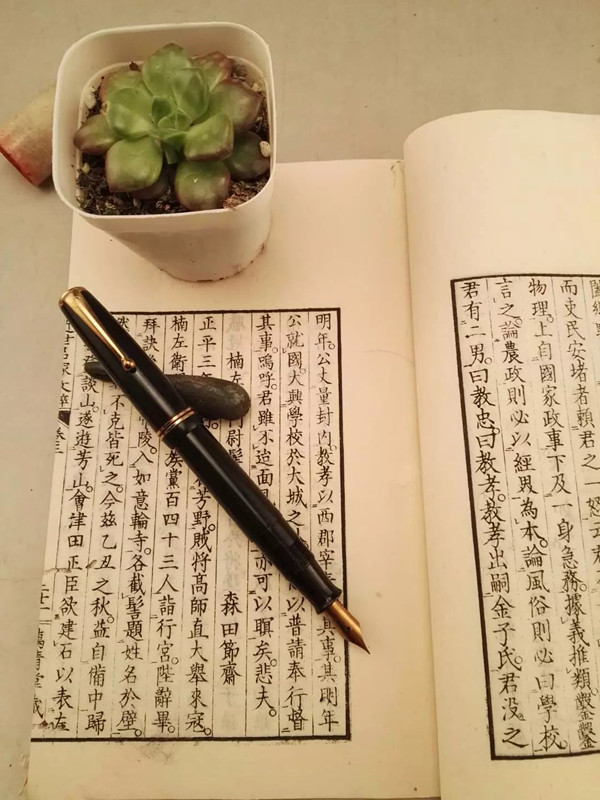 而吏民安堵者賴君之一
物理。上自國家政事下及一身急務。據義推類。鑿鑿
言之。論農政則必以經界為本。論風俗則必曰學校。
君有二男。曰教忠。曰教孝。教孝出嗣金子氏。君没之
明年。公丈量封内。教孝以西郡宰其事。其明年
公就國。大興學校於大城之以普請奉行督
其事。嗚呼。君雖不迨面亦可以瞑矣。悲夫。
楠左門尉髻 森田節齋
正平三年芳野。賊將高師直大舉來寇。
楠左衛族黨百四十三人詣行宮陛辭畢。
拜訣帝陵。入如意輪寺。各截髻題姓名於壁。
不克皆死之。今茲乙丑之秋。益自備中歸
談山。遂遊芳山。會津田正臣欲建石以表
名家文粹 卷三